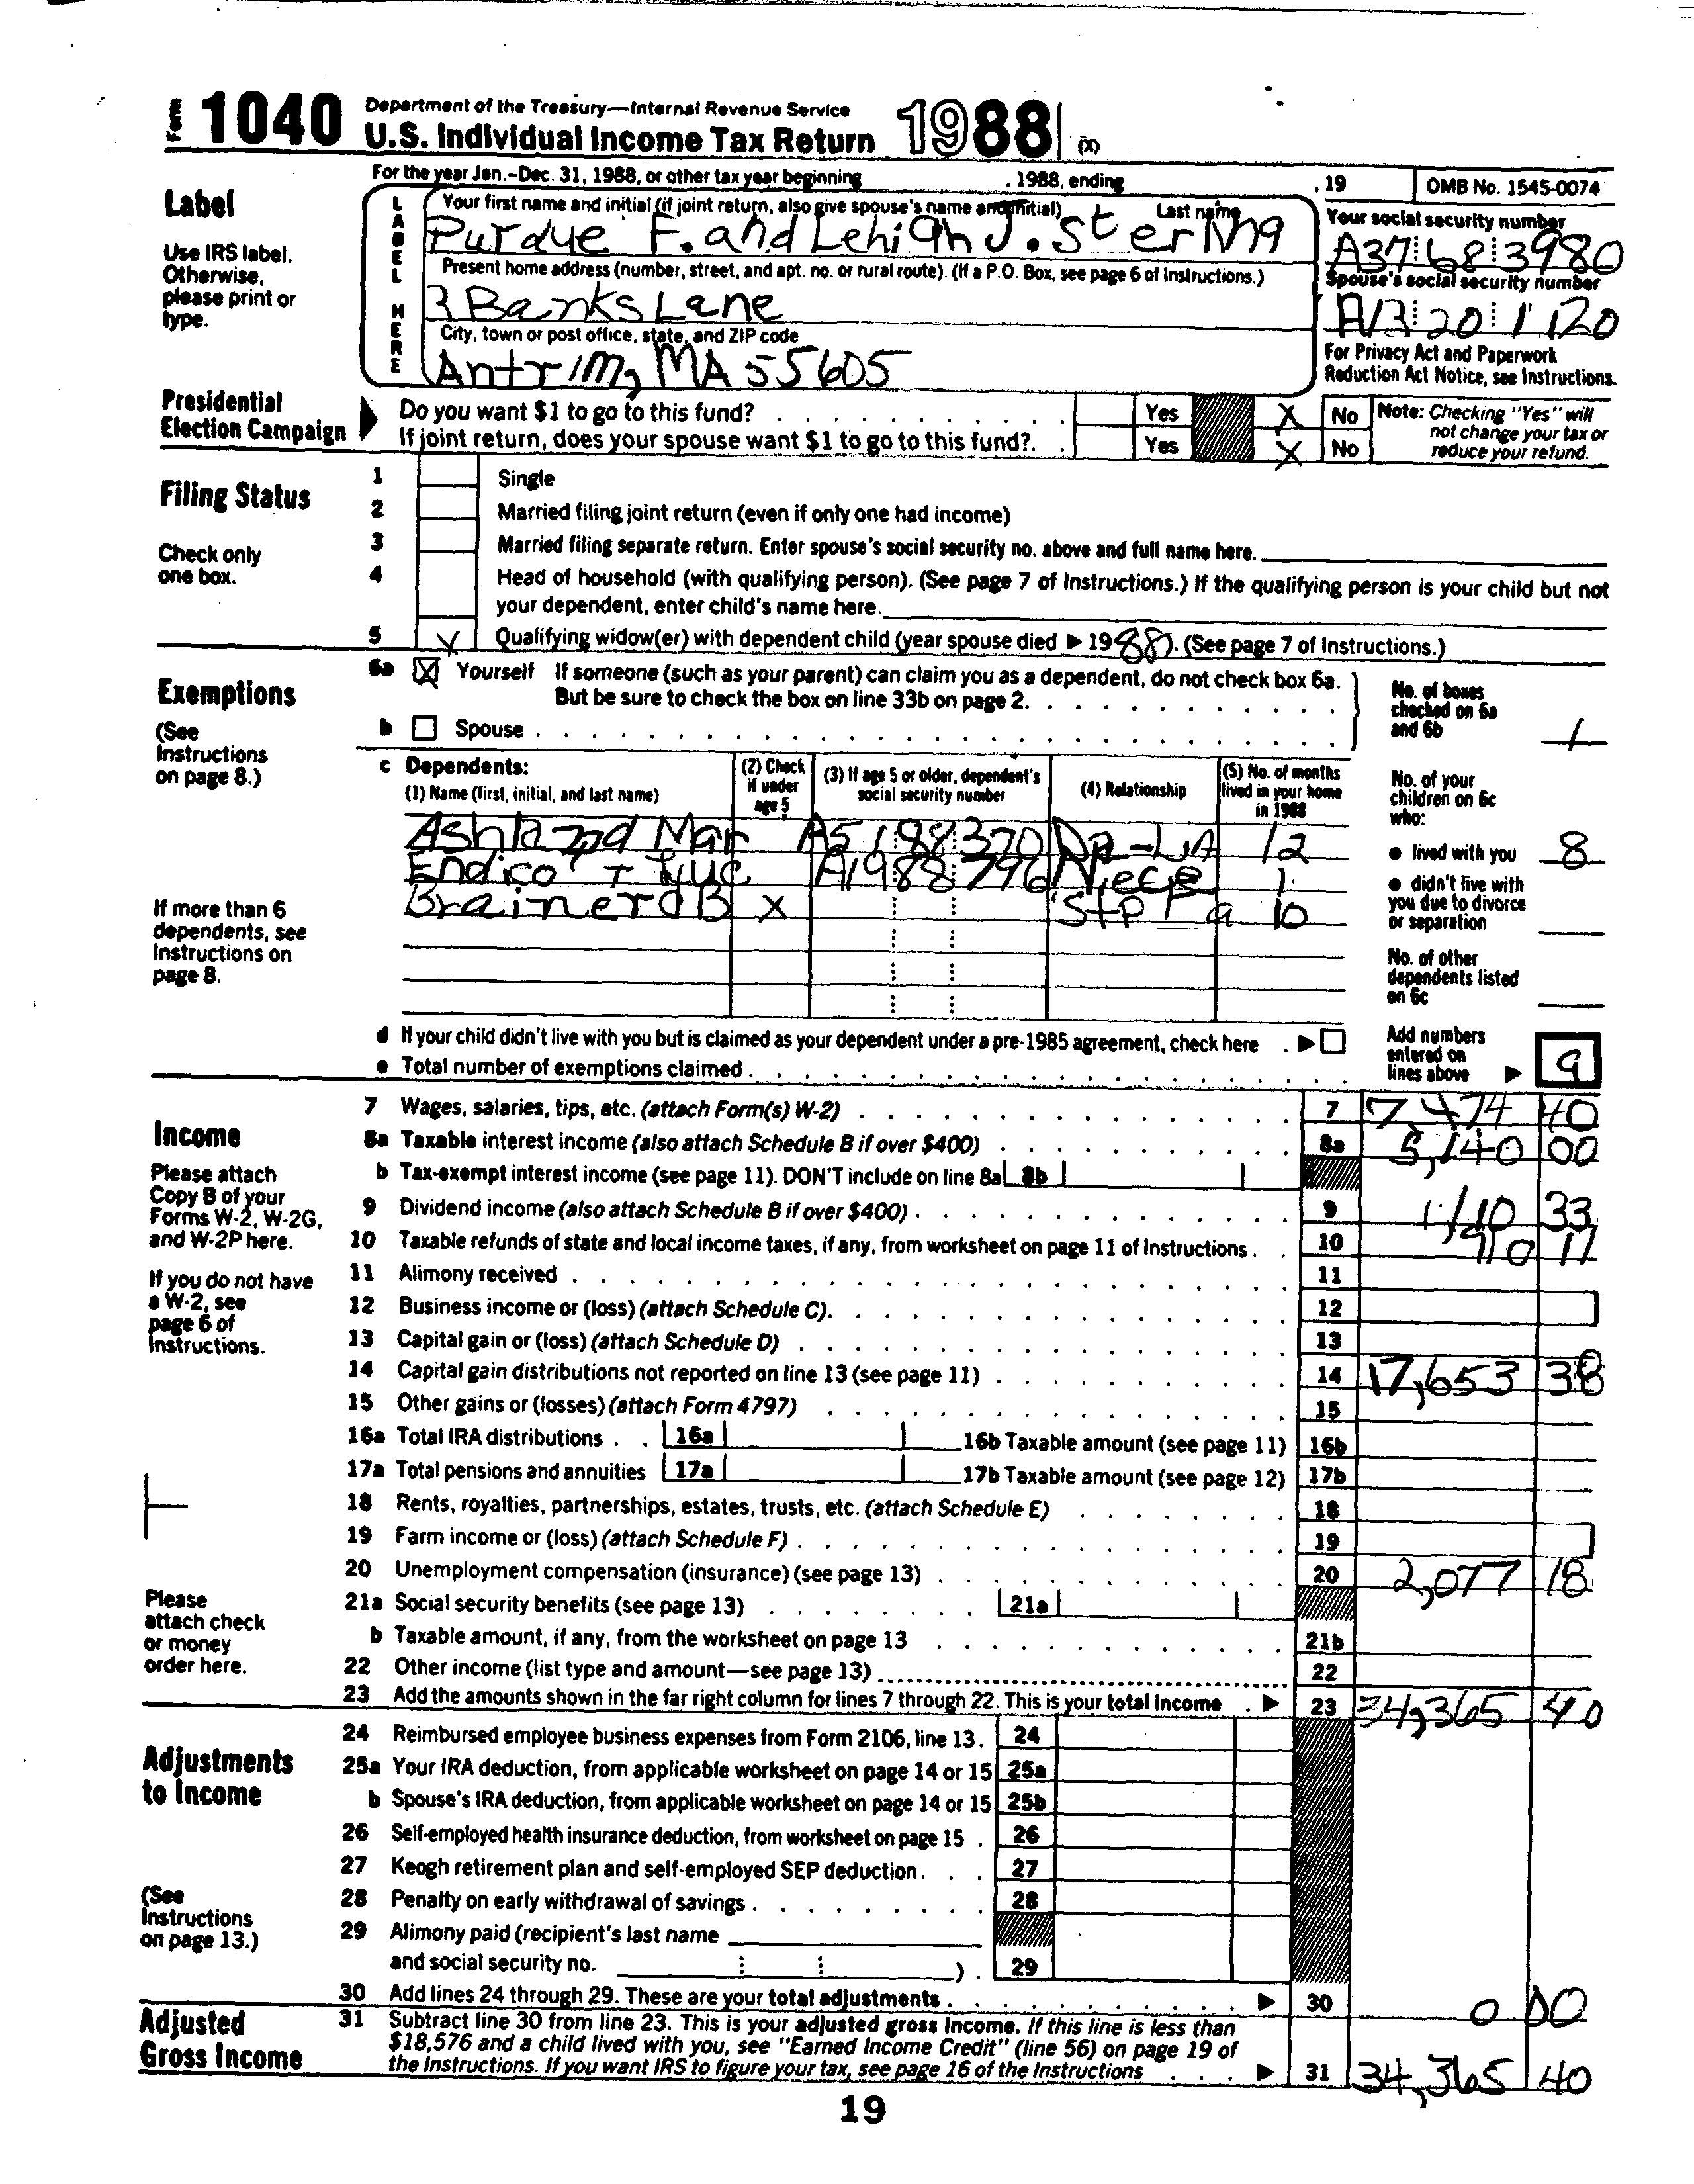 Form 1040 Department of the Treasury—Internal Revenue Service
U.S. Individual Income Tax Return 1988 (X)
For the year Jan.-Dec. 31, 1988, or other tax year beginning , 1988, ending , 19 OMB No. 1545-0074
Label
Use IRS label. Otherwise, please print or type.
LABEL HERE
Your first name and initial (if joint return, also give spouse's name and initial) Last name
Purdue F. and Lehigh J. Sterling
Your social security number
A37 68 3980
Present home address (number, street, and apt. no. or rural route). (If a P.O. Box, see page 6 of Instructions.)
3 Banks Lane
Spouse's social security number
A13 20 1120
City, town or post office, state, and ZIP code
Antrim, MA 55605
For Privacy Act and Paperwork Reduction Act Notice, see Instructions.
Presidential Election Campaign
Do you want $1 to go to this fund? Yes X No
If joint return, does your spouse want $1 to go to this fund? Yes X No
Note: Checking "Yes" will not change your tax or reduce your refund.
Filing Status
Check only one box.
1 Single
2 Married filing joint return (even if only one had income)
3 Married filing separate return. Enter spouse's social security no. above and full name here.
4 Head of household (with qualifying person). (See page 7 of Instructions.) If the qualifying person is your child but not
your dependent, enter child's name here.
5 X Qualifying widow(er) with dependent child (year spouse died ▶ 1988). (See page 7 of Instructions.)
Exemptions
(See Instructions on page 8.)
6a X Yourself If someone (such as your parent) can claim you as a dependent, do not check box 6a.
But be sure to check the box on line 33b on page 2.
b Spouse
No. of boxes checked on 6a and 6b 1
c Dependents:
(1) Name (first, initial, and last name) (2) Check if under age 5 (3) If age 5 or older, dependent's social security number (4) Relationship (5) No. of months lived in your home in 1988
Ashland Mar A51 88 370 Da-LA 12
Endicott Luc A19 88 796 Niece 1
Brainerd B X StpFa 10
If more than 6 dependents, see Instructions on page 8.
No. of your children on 6c who:
● lived with you 8
● didn't live with you due to divorce or separation
No. of other dependents listed on 6c
d If your child didn't live with you but is claimed as your dependent under a pre-1985 agreement, check here ▶
e Total number of exemptions claimed
Add numbers entered on lines above ▶ 9
Income
Please attach Copy B of your Forms W-2, W-2G, and W-2P here.
If you do not have a W-2, see page 6 of Instructions.
Please attach check or money order here.
7 Wages, salaries, tips, etc. (attach Form(s) W-2) 7 7,474 40
8a Taxable interest income (also attach Schedule B if over $400) 8a 5,140 00
b Tax-exempt interest income (see page 11). DON'T include on line 8a 8b
9 Dividend income (also attach Schedule B if over $400) 9 1,110 33
10 Taxable refunds of state and local income taxes, if any, from worksheet on page 11 of Instructions 10 910 11
11 Alimony received 11
12 Business income or (loss) (attach Schedule C) 12
13 Capital gain or (loss) (attach Schedule D) 13
14 Capital gain distributions not reported on line 13 (see page 11) 14 17,653 38
15 Other gains or (losses) (attach Form 4797) 15
16a Total IRA distributions 16a 16b Taxable amount (see page 11) 16b
17a Total pensions and annuities 17a 17b Taxable amount (see page 12) 17b
18 Rents, royalties, partnerships, estates, trusts, etc. (attach Schedule E) 18
19 Farm income or (loss) (attach Schedule F) 19
20 Unemployment compensation (insurance) (see page 13) 20 2,077 18
21a Social security benefits (see page 13) 21a
b Taxable amount, if any, from the worksheet on page 13 21b
22 Other income (list type and amount—see page 13) 22
23 Add the amounts shown in the far right column for lines 7 through 22. This is your total income ▶ 23 34,365 40
Adjustments to Income
(See Instructions on page 13.)
24 Reimbursed employee business expenses from Form 2106, line 13 24
25a Your IRA deduction, from applicable worksheet on page 14 or 15 25a
b Spouse's IRA deduction, from applicable worksheet on page 14 or 15 25b
26 Self-employed health insurance deduction, from worksheet on page 15 26
27 Keogh retirement plan and self-employed SEP deduction 27
28 Penalty on early withdrawal of savings 28
29 Alimony paid (recipient's last name
and social security no. ) 29
30 Add lines 24 through 29. These are your total adjustments ▶ 30 0 00
Adjusted Gross Income
31 Subtract line 30 from line 23. This is your adjusted gross income. If this line is less than
$18,576 and a child lived with you, see "Earned Income Credit" (line 56) on page 19 of
the Instructions. If you want IRS to figure your tax, see page 16 of the Instructions ▶ 31 34,365 40
19